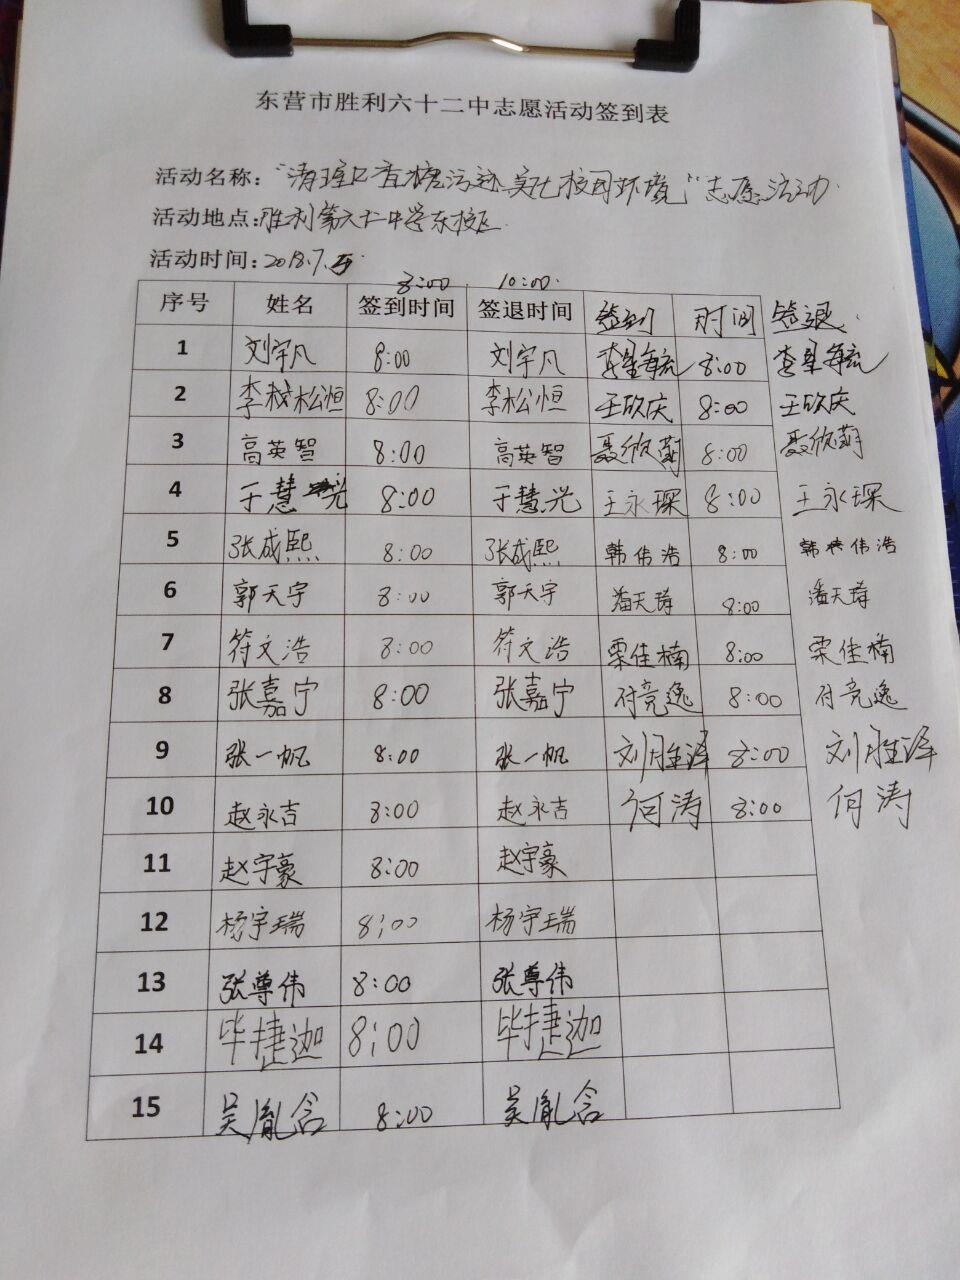 东营市胜利六十二中志愿活动签到表
活动名称："清理口香糖污迹 美化校园环境"志愿活动
活动地点:胜利第六十二中学东校区
活动时间:2018.7.
8:00 10:00
序号 姓名 签到时间 签退时间 签到 时间 签退
1 刘宇凡 8:00 刘宇凡 李星 8:00 李星
2 李松恒 8:00 李松恒 王欣庆 8:00 王欣庆
3 高英智 8:00 高英智 聂欣蔚 8:00 聂欣蔚
4 于慧光 8:00 于慧光 王永琛 8:00 王永琛
5 张成熙 8:00 张成熙 韩伟浩 8:00 韩伟浩
6 郭天宇 8:00 郭天宇 潘天 8:00 潘天
7 符文浩 8:00 符文浩 栗佳楠 8:00 栗佳楠
8 张嘉宁 8:00 张嘉宁 付竞逸 8:00 付竞逸
9 张一帆 8:00 张一帆 刘胜泽 8:00 刘胜泽
10 赵永吉 8:00 赵永吉 何涛 8:00 何涛
11 赵宇豪 8:00 赵宇豪
12 杨宇瑞 8:00 杨宇瑞
13 张尊伟 8:00 张尊伟
14 毕捷迦 8:00 毕捷迦
15 吴胤含 8:00 吴胤含